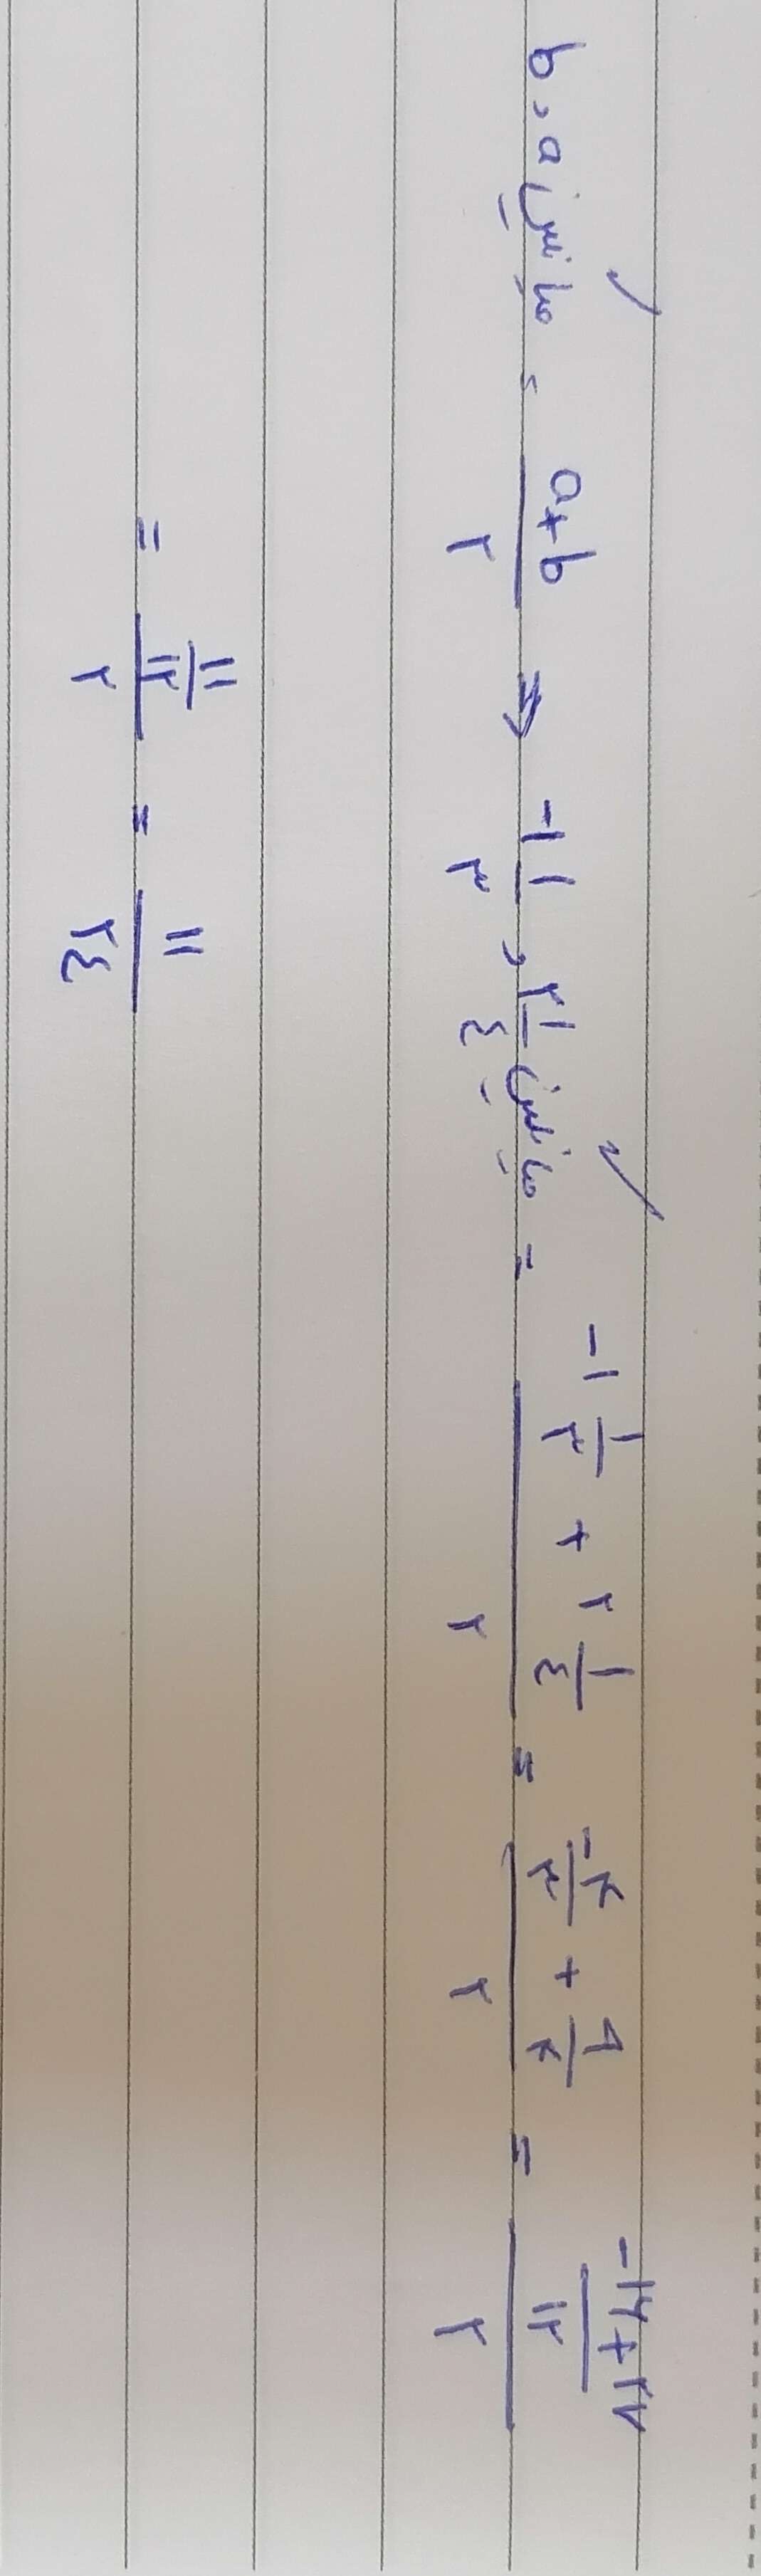 b , a میانگین = (a+b)/۲ ⇒ -۱ ۱/۳ , ۲ ۱/۴ میانگین = (-۱ ۱/۳ + ۲ ۱/۴)/۲ = (-۴/۳ + ۹/۴)/۲ = ((-۱۶+۲۷)/۱۲)/۲
= (۱۱/۱۲)/۲ = ۱۱/۲۴